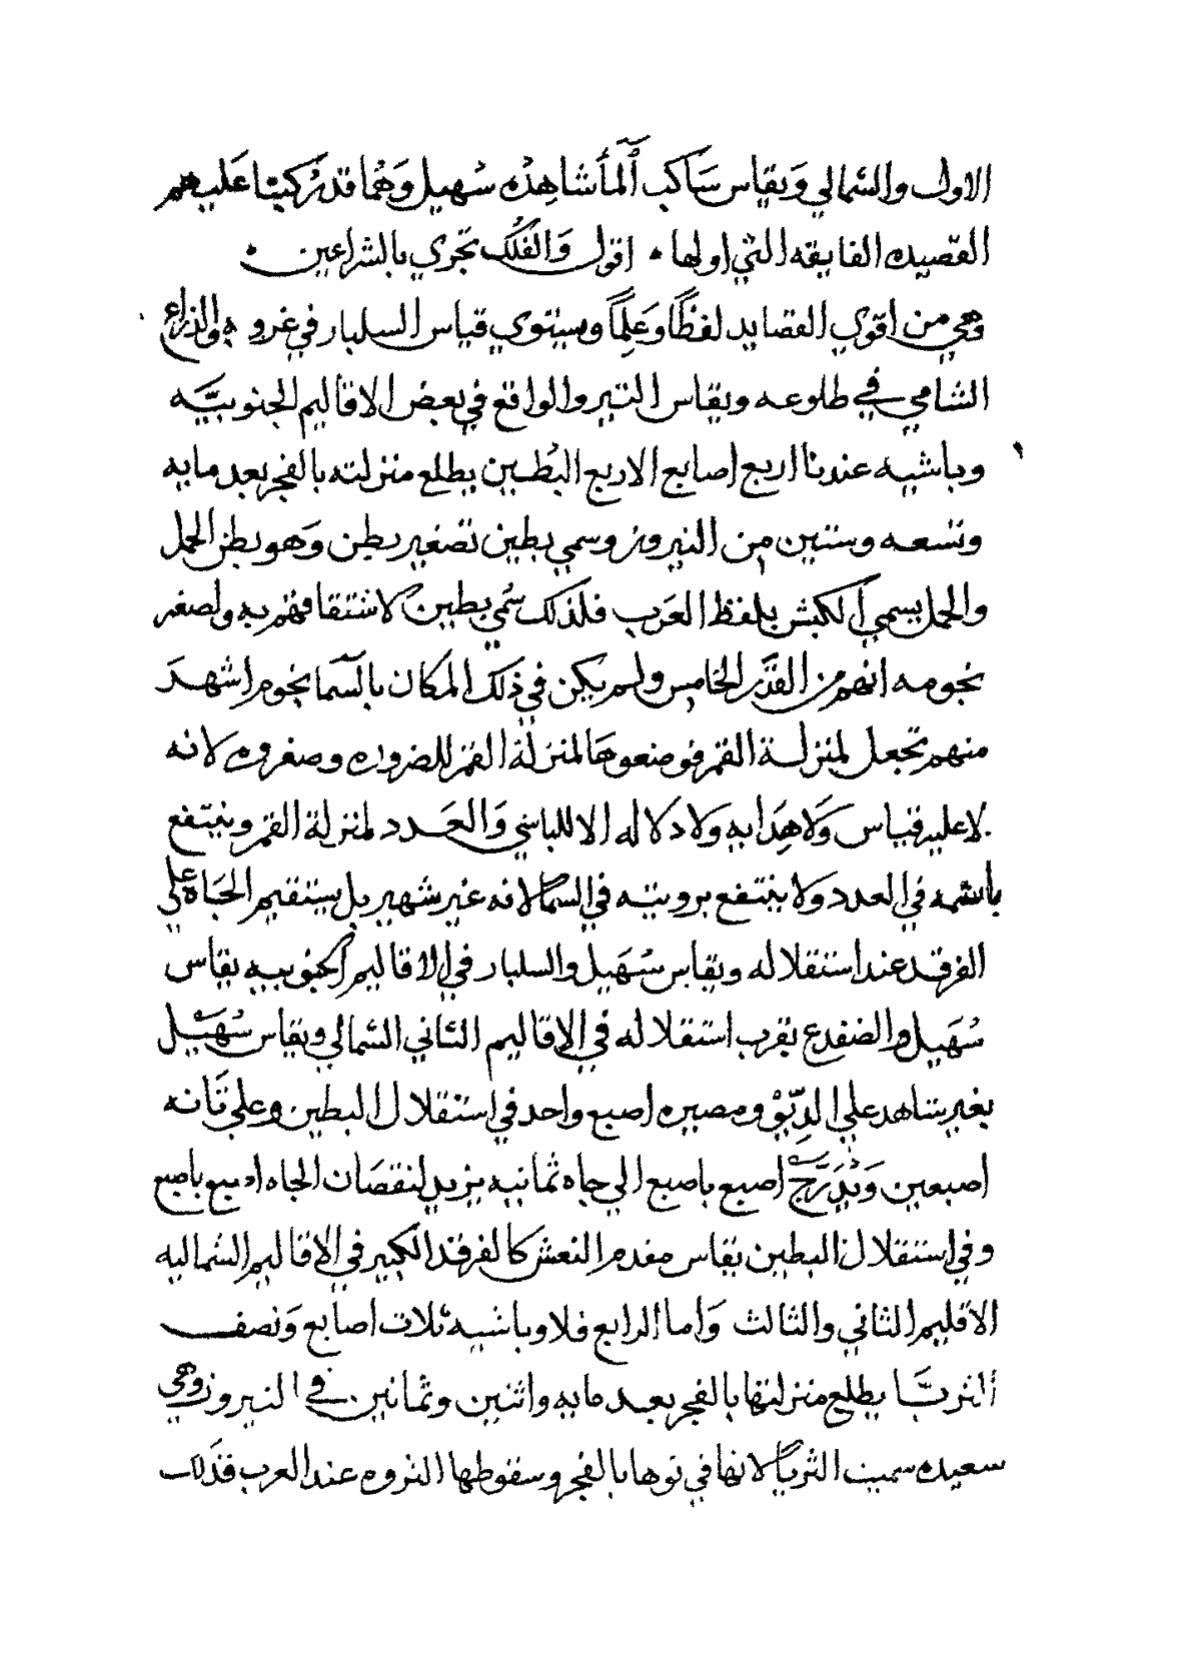 الاول والشمالي وَيقاس سَاكب اَلمأ شاهِدُه سُهيل وَهُما قد رَكبنا عَليهم
القصيده الفايقه التي اولها • اقول وَالفُلك تجري بالشراعين •
وهي من اقوي القصايد لفظًا وَعَلِمًا ويستوي قياس السلبار في غروبه والذراع
الشامي في طلوعه ويقاس النير والواقع في بعض الاقاليم الجنوبيَّه
وباشيه عندنا اربع اصابع الاربع البُطين يطلع منزلته بالفجر بعد مايه
وتسعه وستين من النيروز وسمي بطين تصغير بطن وَهو بطن الحمل
والحمل يسمي اَلكبش بلفظ العَرب فلذلك سُمي بطين لاشتقاقهم به ولصغر
نجومه انهم من القَدَر الخامس ولم يكن في ذلك المكان بالسَّما نجوم اشهَر
منهم تجعل لمنزلة القمر فوضعوها لمنزلة القمر للضروره وصغروه لانه
لا عليه قياس وَلا هِدَايه ولا دلاله الا للباشي وَالعَدد لمنزلة القمر وينتفع
باسمه في العدد وَلا ينتفع برويته في السما لانه غير شهير بل يستقيم الجَاه علي
الفرقد عند استقلاله ويقاس سُهَيل والسلبار في الاقاليم اَلجنوبيه يقاس
سُهَيل والضفدع بقرب استقلاله في الاقاليم الثاني الشمالي ويقاس سُهَيْل
بغير شاهد علي الدِيّوْ ومصيره اصبع واحد في استقلال البطين وعلي تَانه
اصبعين وَيُدَرَّج اصبع باصبع الي جاه ثمانيه يزيد لنقصَان الجاه اصبع باصبع
وفي استقلال البطين يقاس مقدم النعش كالفرقد الكبير في الاقاليم الشماليه
الاقليم الثاني والثالث وَاما الرابع فلا وباشيه ثلاث اصابع وَنصف
الثريَّا يطلع منزلتها بالفجر بعد مايه واثنين وثمانين في النيروز وهي
سعيده سميت الثريا لانها في نوها بالفجر وسقوطها الثروه عند العرب فذلك